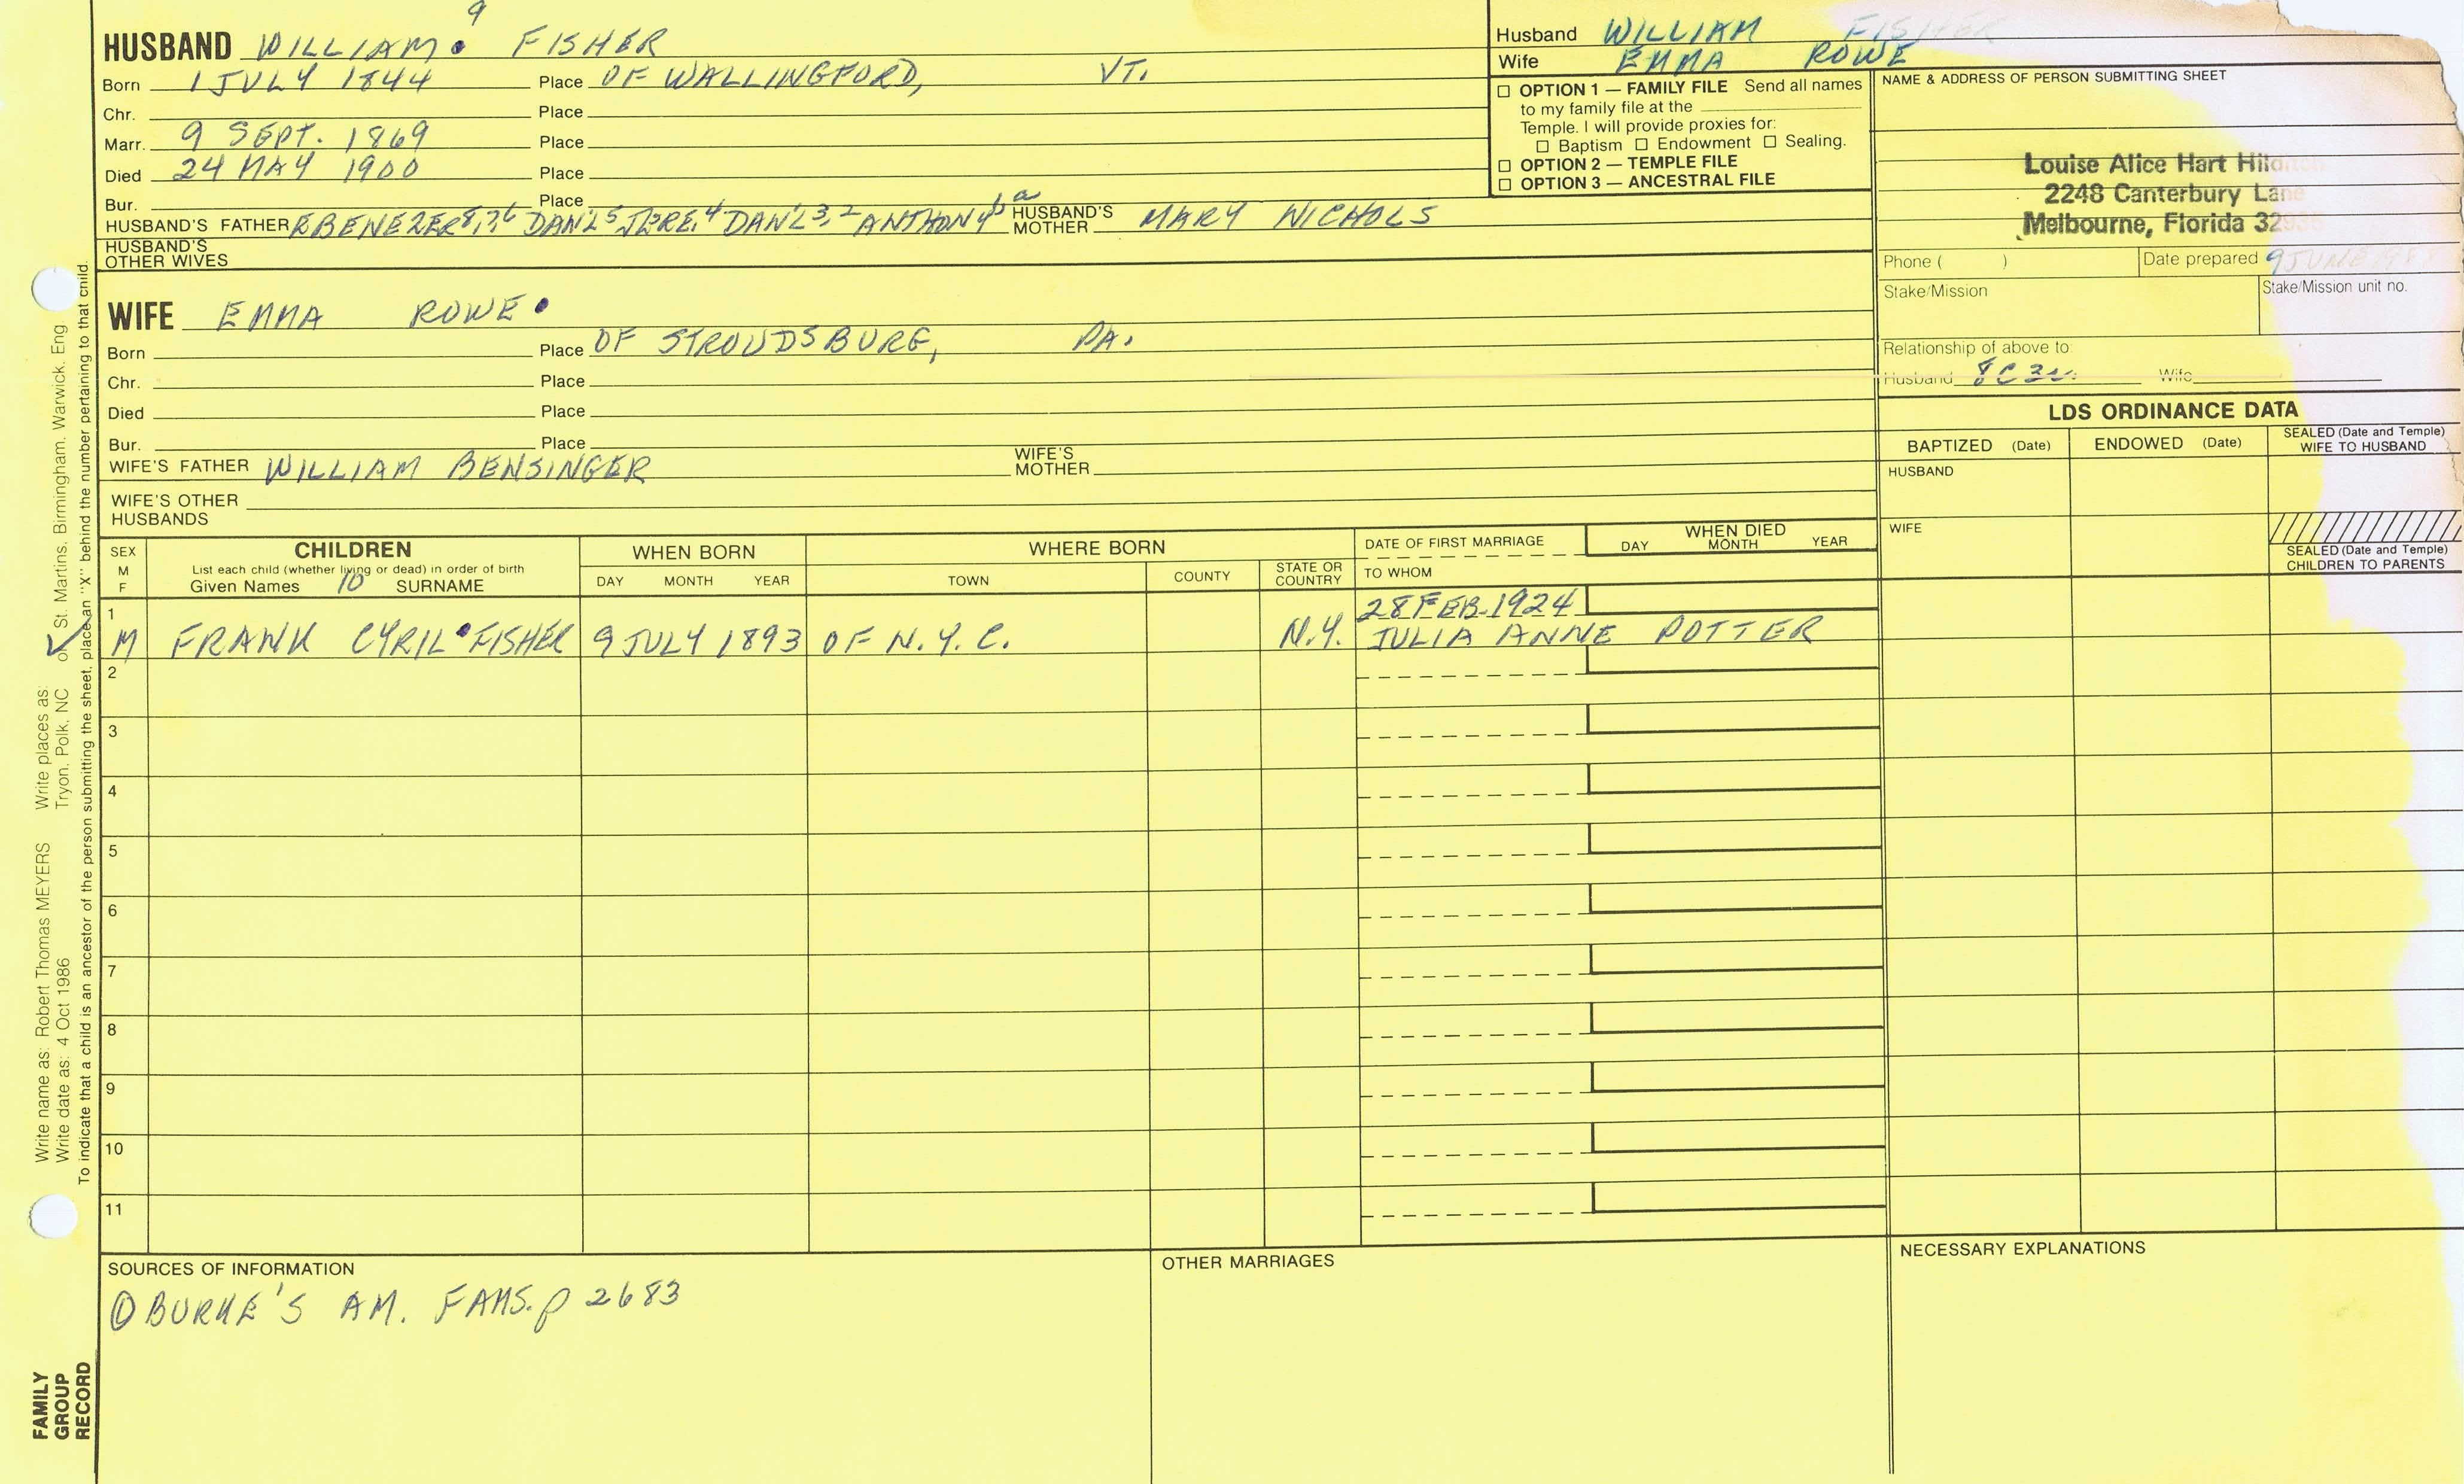 9
HUSBAND WILLIAM FISHER
Born 1 JULY 1844 Place OF WALLINGFORD, VT.
Chr. Place
Marr. 9 SEPT. 1869 Place
Died 24 MAY 1900 Place
Bur. Place
HUSBAND'S FATHER EBENEZER 8,7,6 DAN'L 5 JERE. 4 DAN'L 3,2 ANTHONY 1 a HUSBAND'S MOTHER MARY NICHOLS
HUSBAND'S OTHER WIVES
Husband WILLIAM FISHER
Wife EMMA ROWE
☐ OPTION 1 — FAMILY FILE Send all names
to my family file at the
Temple. I will provide proxies for:
☐ Baptism ☐ Endowment ☐ Sealing.
☐ OPTION 2 — TEMPLE FILE
☐ OPTION 3 — ANCESTRAL FILE
NAME & ADDRESS OF PERSON SUBMITTING SHEET
Louise Alice Hart
2248 Canterbury Lane
Melbourne, Florida
Phone ( ) Date prepared 9 JUNE
Stake/Mission Stake/Mission unit no.
Relationship of above to:
Husband 8C3 Wife
WIFE EMMA ROWE
Born Place OF STROUDSBURG, PA.
Chr. Place
Died Place
Bur. Place
WIFE'S FATHER WILLIAM BENSINGER WIFE'S MOTHER
WIFE'S OTHER HUSBANDS
LDS ORDINANCE DATA
BAPTIZED (Date) ENDOWED (Date) SEALED (Date and Temple) WIFE TO HUSBAND
HUSBAND
WIFE
SEALED (Date and Temple)
CHILDREN TO PARENTS
SEX
M
F
CHILDREN
List each child (whether living or dead) in order of birth
Given Names 10 SURNAME
WHEN BORN
DAY MONTH YEAR
WHERE BORN
TOWN COUNTY STATE OR COUNTRY
DATE OF FIRST MARRIAGE
TO WHOM
WHEN DIED
DAY MONTH YEAR
1 28 FEB. 1924
✓ M FRANK CYRIL FISHER 9 JULY 1893 OF N.Y.C. N.Y. JULIA ANNE POTTER
2
3
4
5
6
7
8
9
10
11
SOURCES OF INFORMATION
① BURKE'S AM. FAMS. p 2683
OTHER MARRIAGES
NECESSARY EXPLANATIONS
Write name as: Robert Thomas MEYERS Write places as:
Write date as: 4 Oct 1986 Tryon, Polk, NC or St. Martins, Birmingham, Warwick, Eng
To indicate that a child is an ancestor of the person submitting the sheet, place an "X" behind the number pertaining to that child.
FAMILY
GROUP
RECORD